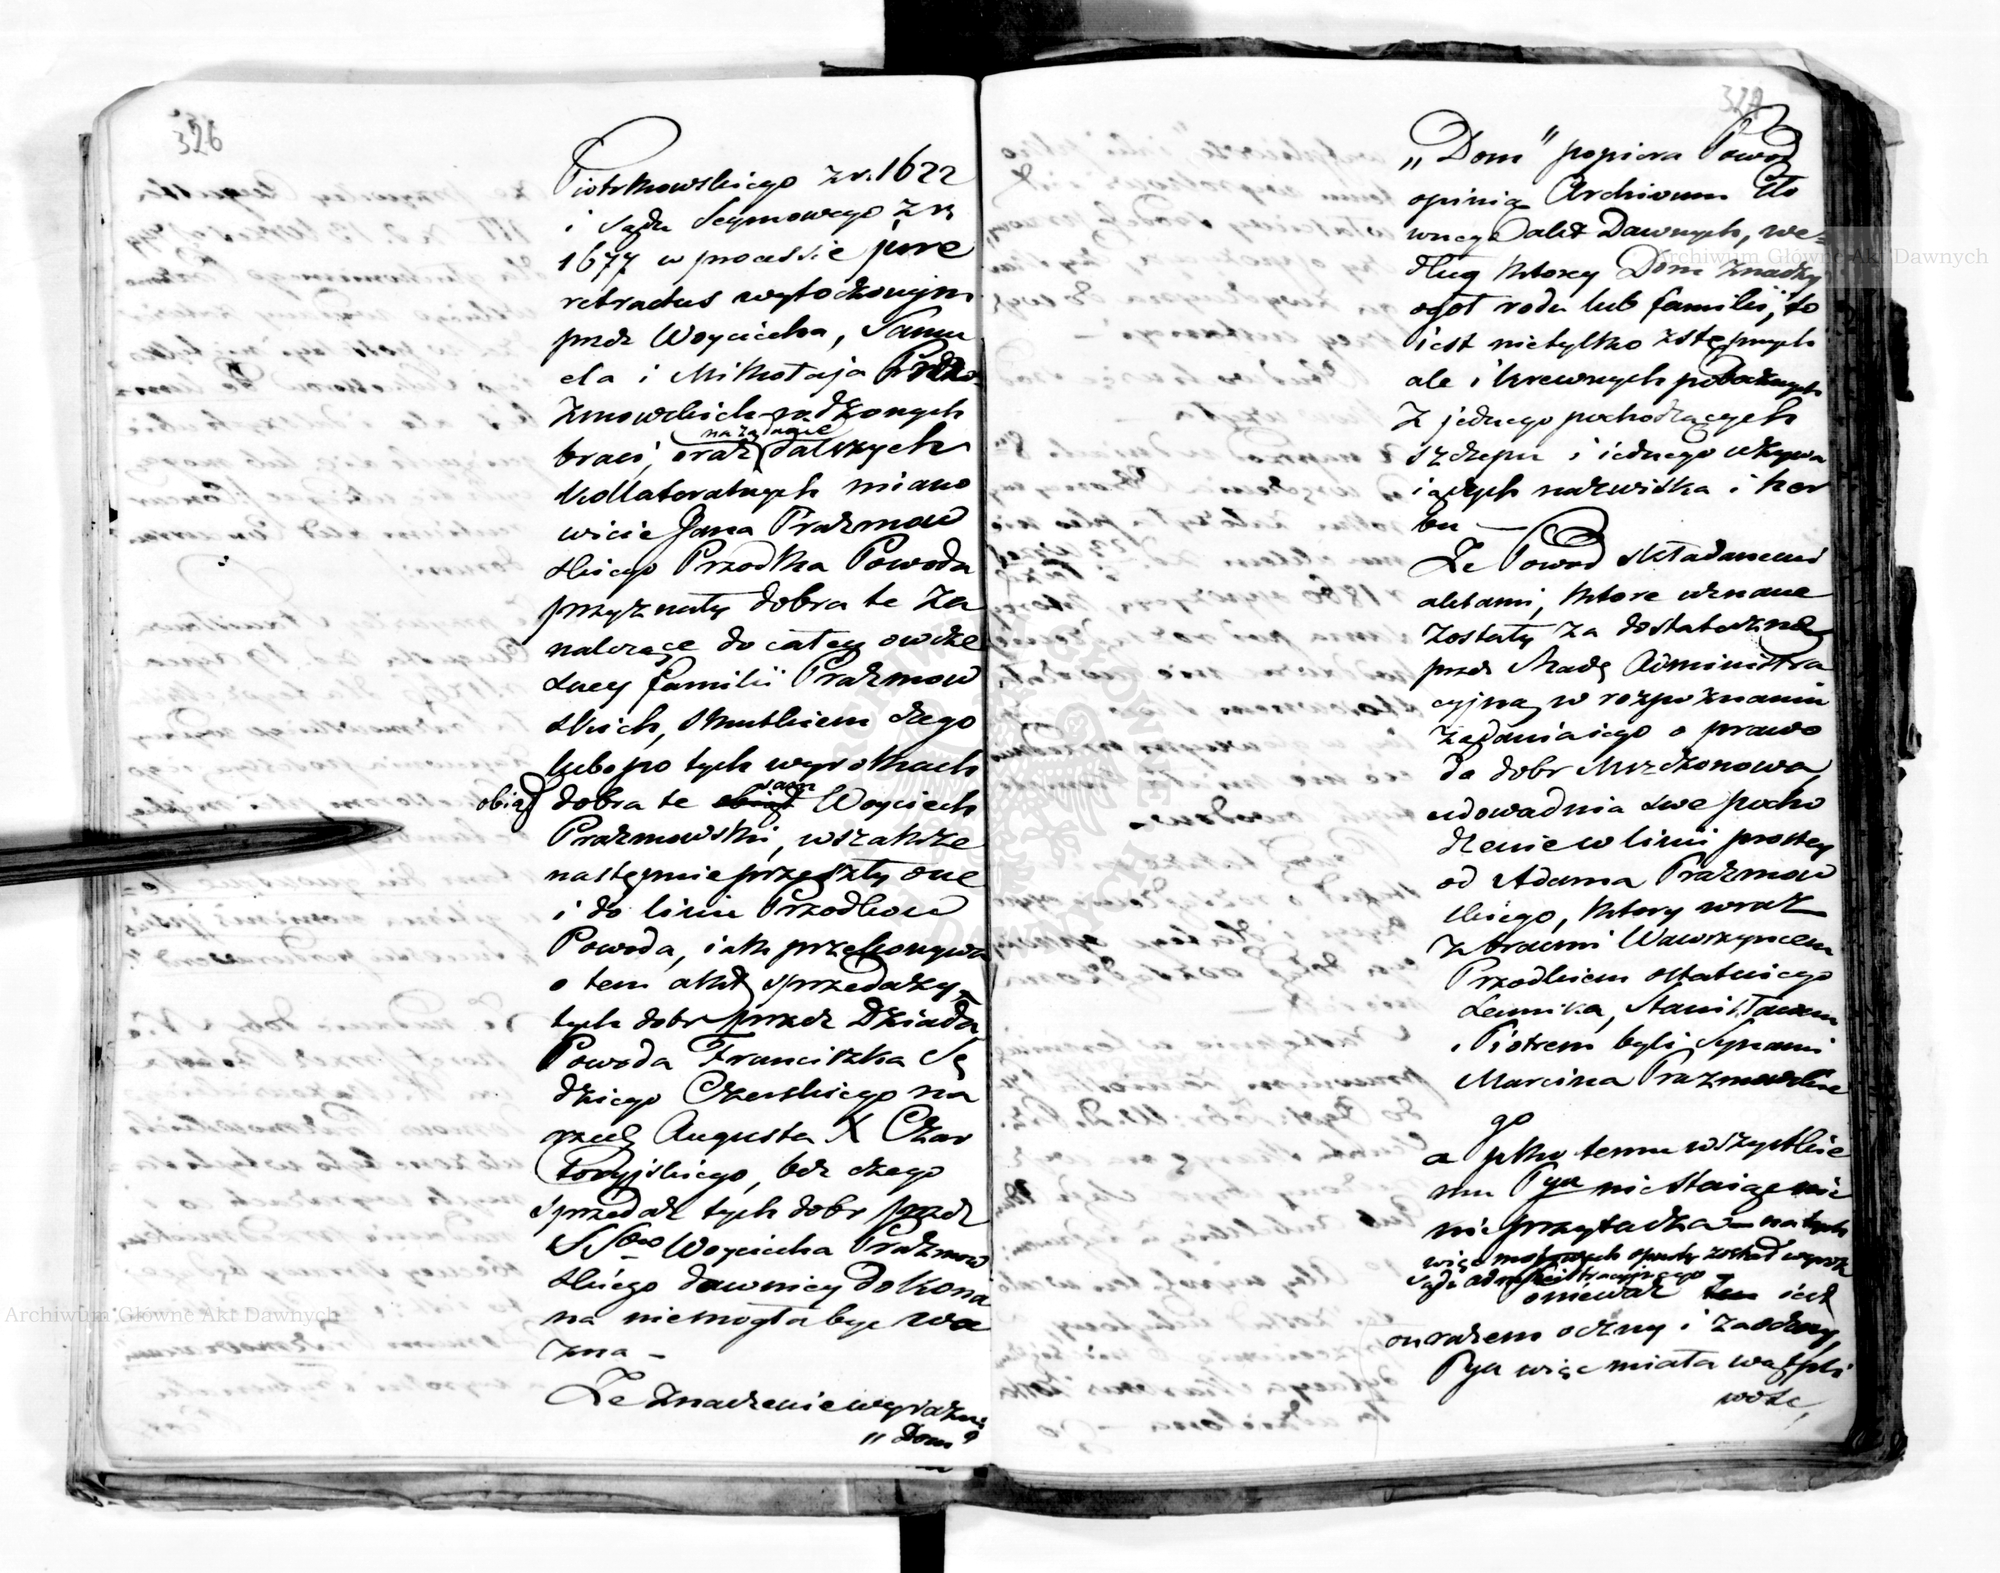 326
Piotrkowskiego z r. 1622
i Sądu Seymowego z r.
1677 w processie jure
retractus wytoczonym
przez Woyciecha, Samu
ela i Mikołaja Praż
zmowskich rodzonych
braci, oraz na żądanie dalszych
Kollateralnych miano
wicie Jana Prażmow
skiego Przodka Powoda
przyznały dobra te za
należące do całey owcze
sney familii Prażmow
skich, skutkiem czego
lubo po tych wyrokach
objął dobra te sam Woyciech
Prażmowski, wszakże
następnie przeszły one
i do linii Przodków
Powoda, iak przekonywa
o tem akt sprzedaży
tych dobr przez Dziada
Powoda Franciszka Sę
dziego Czerskiego na
rzecz Augusta X Czar
toryjskiego, bez czego
sprzedaż tych dobr przez
SSrow Woyciecha Prażmow
skiego dawniey dokona
na niemogła być wa
żna —
Że znaczenie wyrazu
„Dom"
327
„Dom" popiera Powod
opinią Archiwum Głó
wnego akt Dawnych, we-
dług którey Dom znaczy
ogół rodu lub familii, to
iest nietylko zstępnych
ale i krewnych pobocznych
z jednego pochodzących
szczepu i iednego używa
iących nazwiska i her
bu —
Że Powod składanemi
aktami, które uznane
zostały za dostateczne
przez Radę Administra
cyjną w rozpoznaniu
żądania iego o prawo
do dobr Mrzckonowa,
udowadnia swe pocho
dzenie w linii prostey
od Adama Prażmow
skiego, który wraz
z braćmi Wawrzyncem
Przodkiem ostatniego
Lennika, Stanisławem
i Piotrem byli Synami
Marcina Prażmowskie
go
a jako temu wszystkie
mu Pyu nic staiące nie
nieprzytacza — na tych
więc mocnych oparty został wyrok
Sądu administracyjnego
ponieważ iest
on razem oczny i zaoczny,
Pyu więc miała wątpli
wość,
Archiwum Główne Akt Dawnych
Archiwum Główne Akt Dawnych